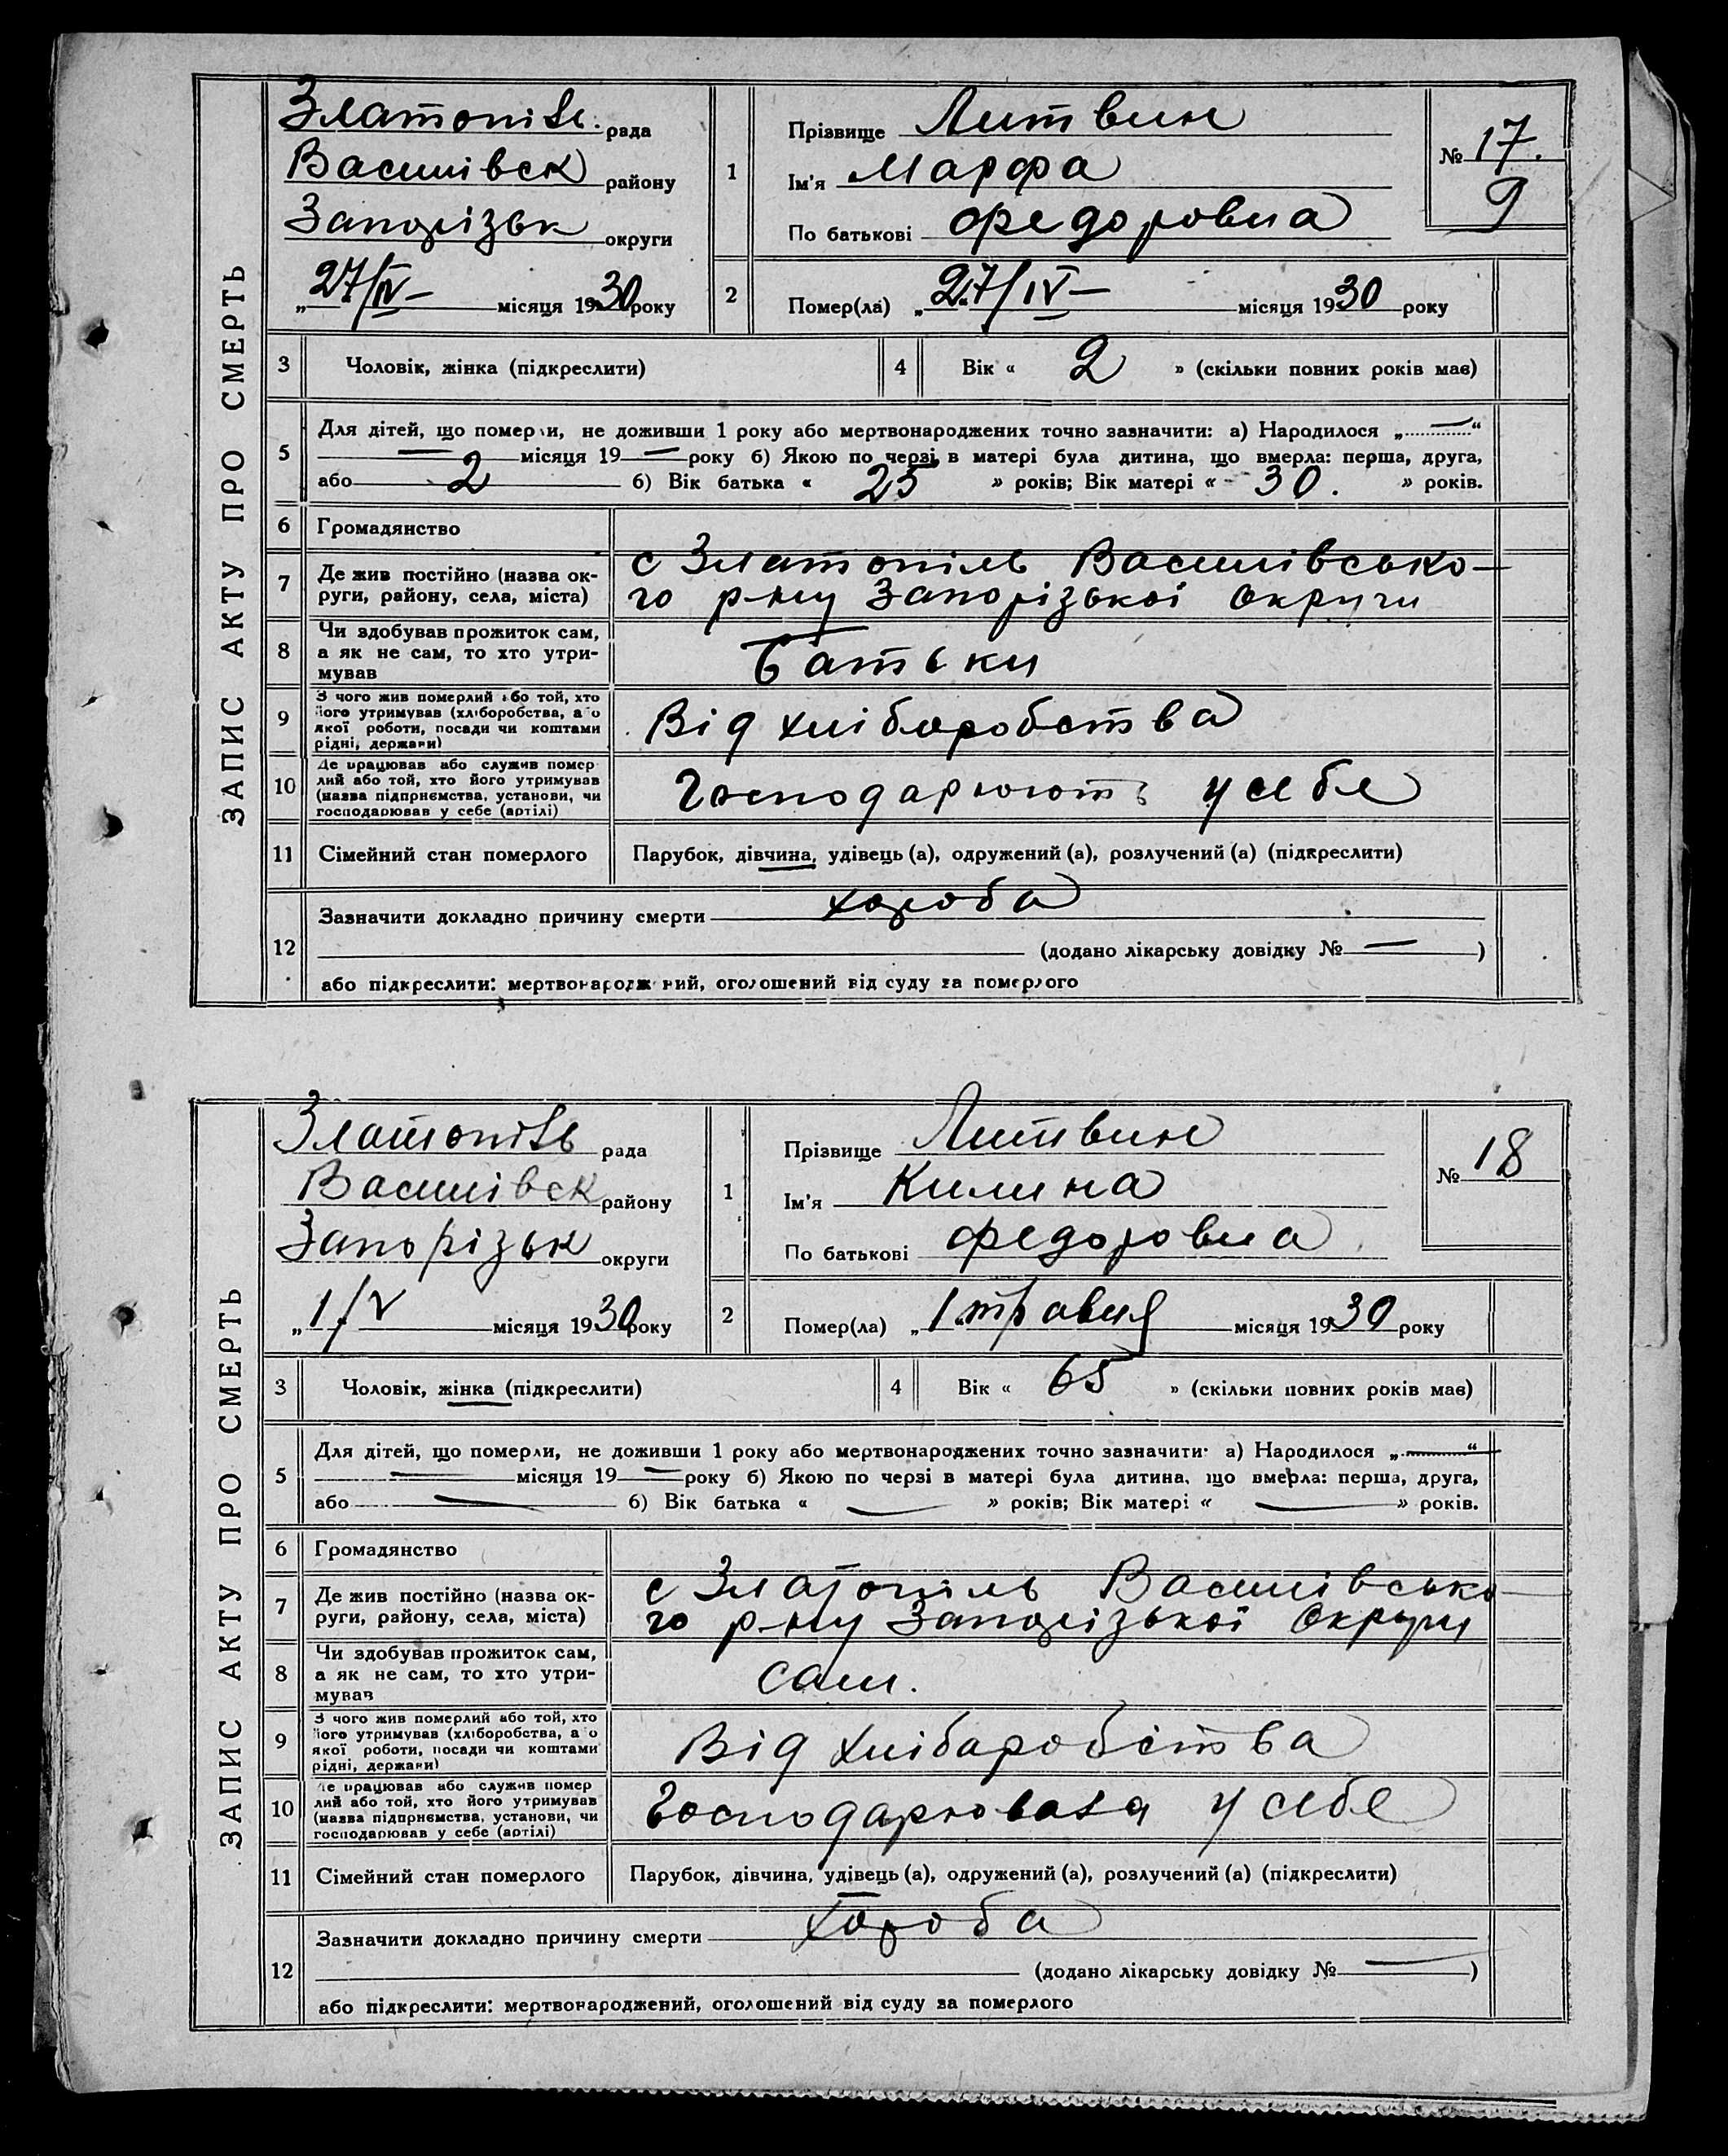 ЗАПИС АКТУ ПРО СМЕРТЬ
Златопіль. рада
Василівск району
Запорізьк округи
„27/IV— місяця 1930 року
1
Прізвище Литвин
Ім'я Марфа
По батькові Федоровна
№ 17.
9
2
Помер(ла) „27/IV— місяця 1930 року
3 Чоловік, жінка (підкреслити)
4 Вік « 2 » (скільки повних років має)
5
Для дітей, що померли, не доживши 1 року або мертвонароджених точно зазначити: а) Народилося „—“
— місяця 19— року б) Якою по черзі в матері була дитина, що вмерла: перша, друга,
або 2 б) Вік батька « 25 » років; Вік матері « 30. » років.
6 Громадянство
7
Де жив постійно (назва ок-
руги, району, села, міста)
с Златопіль Василівсько-
го р-ну Запорізької Округи
8
Чи здобував прожиток сам,
а як не сам, то хто утри-
мував
Батьки
9
З чого жив померлий або той, хто
його утримував (хліборобства, або
якої роботи, посади чи коштами
рідні, держави)
Від хліборобства
10
Де працював або служив помер
лий або той, хто його утримував
(назва підприємства, установи, чи
господарював у себе (артілі)
Господарюють у себе
11 Сімейний стан померлого
Парубок, дівчина, удівець (а), одружений (а), розлучений (а) (підкреслити)
12
Зазначити докладно причину смерти хороба
(додано лікарську довідку № — )
або підкреслити: мертвонароджений, оголошений від суду за померлого
ЗАПИС АКТУ ПРО СМЕРТЬ
Златопіль рада
Василівск району
Запорізьк округи
„1/V місяця 1930 року
1
Прізвище Литвин
Ім'я Килина
По батькові Федоровна
№ 18
2
Помер(ла) „1 травня місяця 1930 року
3 Чоловік, жінка (підкреслити)
4 Вік « 65 » (скільки повних років має)
5
Для дітей, що померли, не доживши 1 року або мертвонароджених точно зазначити: а) Народилося „—“
— місяця 19— року б) Якою по черзі в матері була дитина, що вмерла: перша, друга,
або — б) Вік батька « — » років; Вік матері « — » років.
6 Громадянство
7
Де жив постійно (назва ок-
руги, району, села, міста)
с Златопіль Василівсько
го р-ну Запорізької Округи
8
Чи здобував прожиток сам,
а як не сам, то хто утри-
мував
Сам.
9
З чого жив померлий або той, хто
його утримував (хліборобства, або
якої роботи, посади чи коштами
рідні, держави)
Від хлібаробства
10
Де працював або служив помер
лий або той, хто його утримував
(назва підприємства, установи, чи
господарював у себе (артілі)
Господарювала у себе
11 Сімейний стан померлого
Парубок, дівчина, удівець (а), одружений (а), розлучений (а) (підкреслити)
12
Зазначити докладно причину смерти Хороба
(додано лікарську довідку № — )
або підкреслити: мертвонароджений, оголошений від суду за померлого